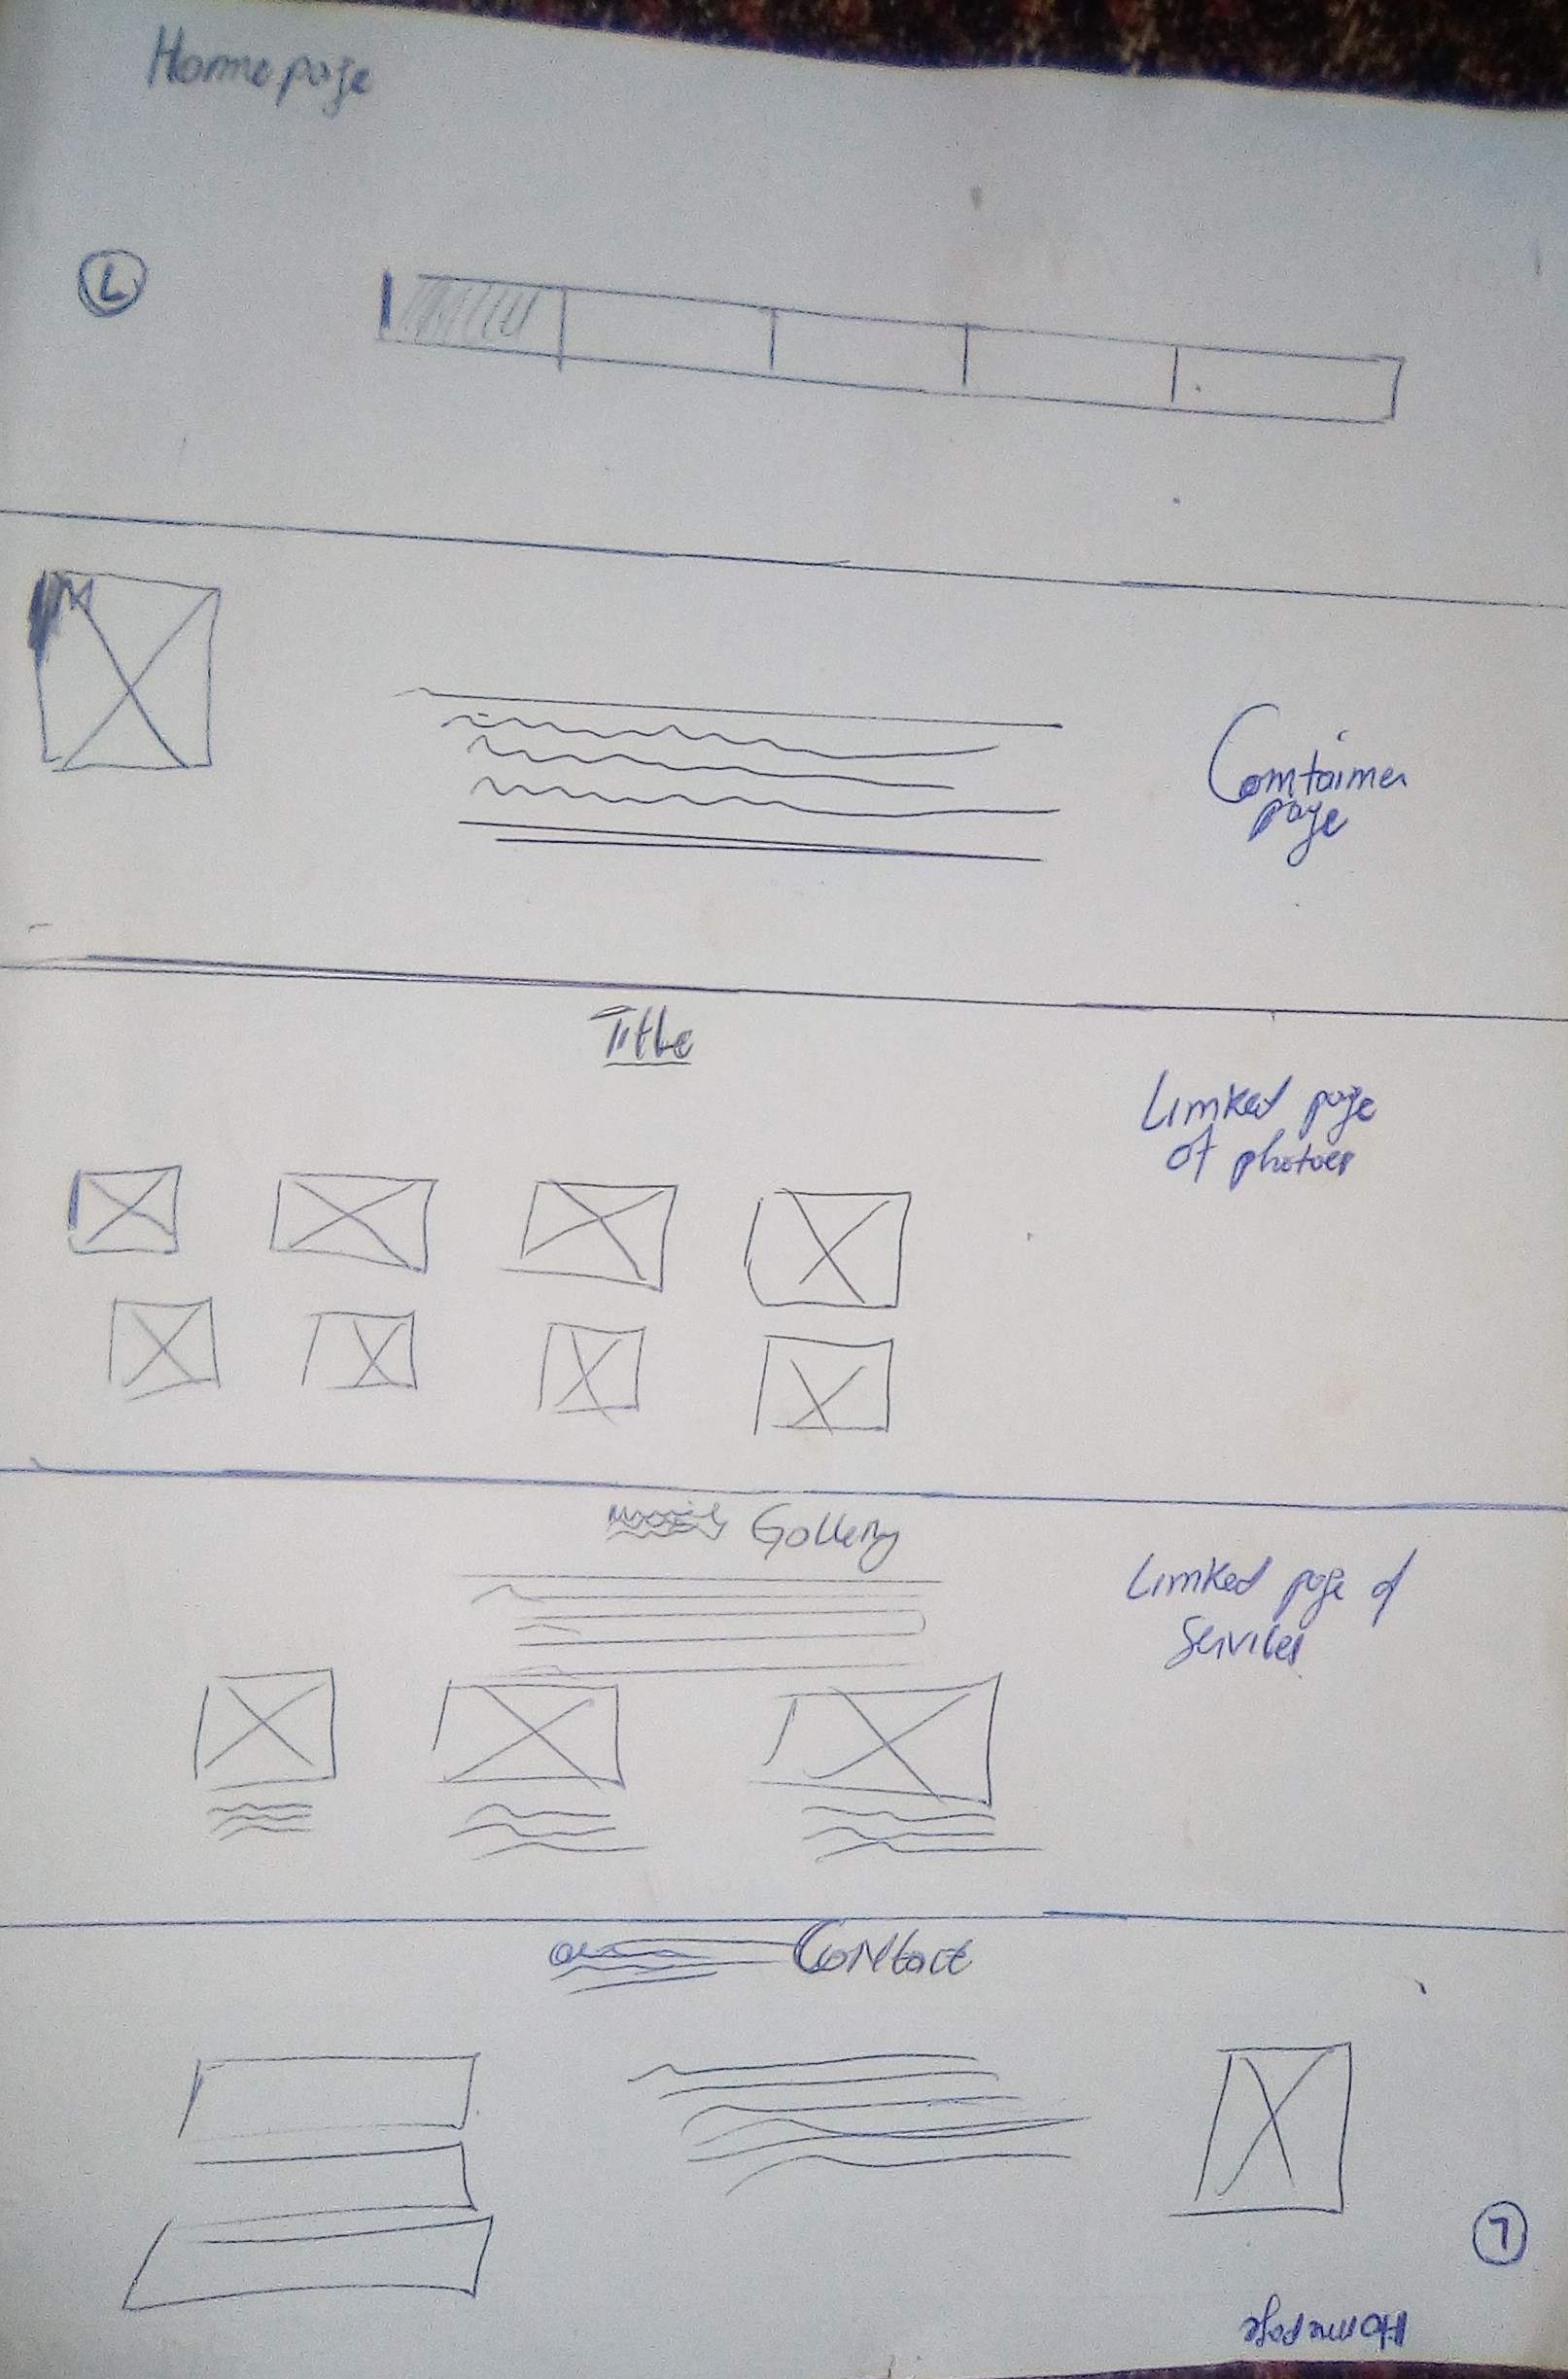 Homepage
L
Container
page
Title
Linked page
of photoes
Gallery
Linked page of
Services
Contact
L
Homepage